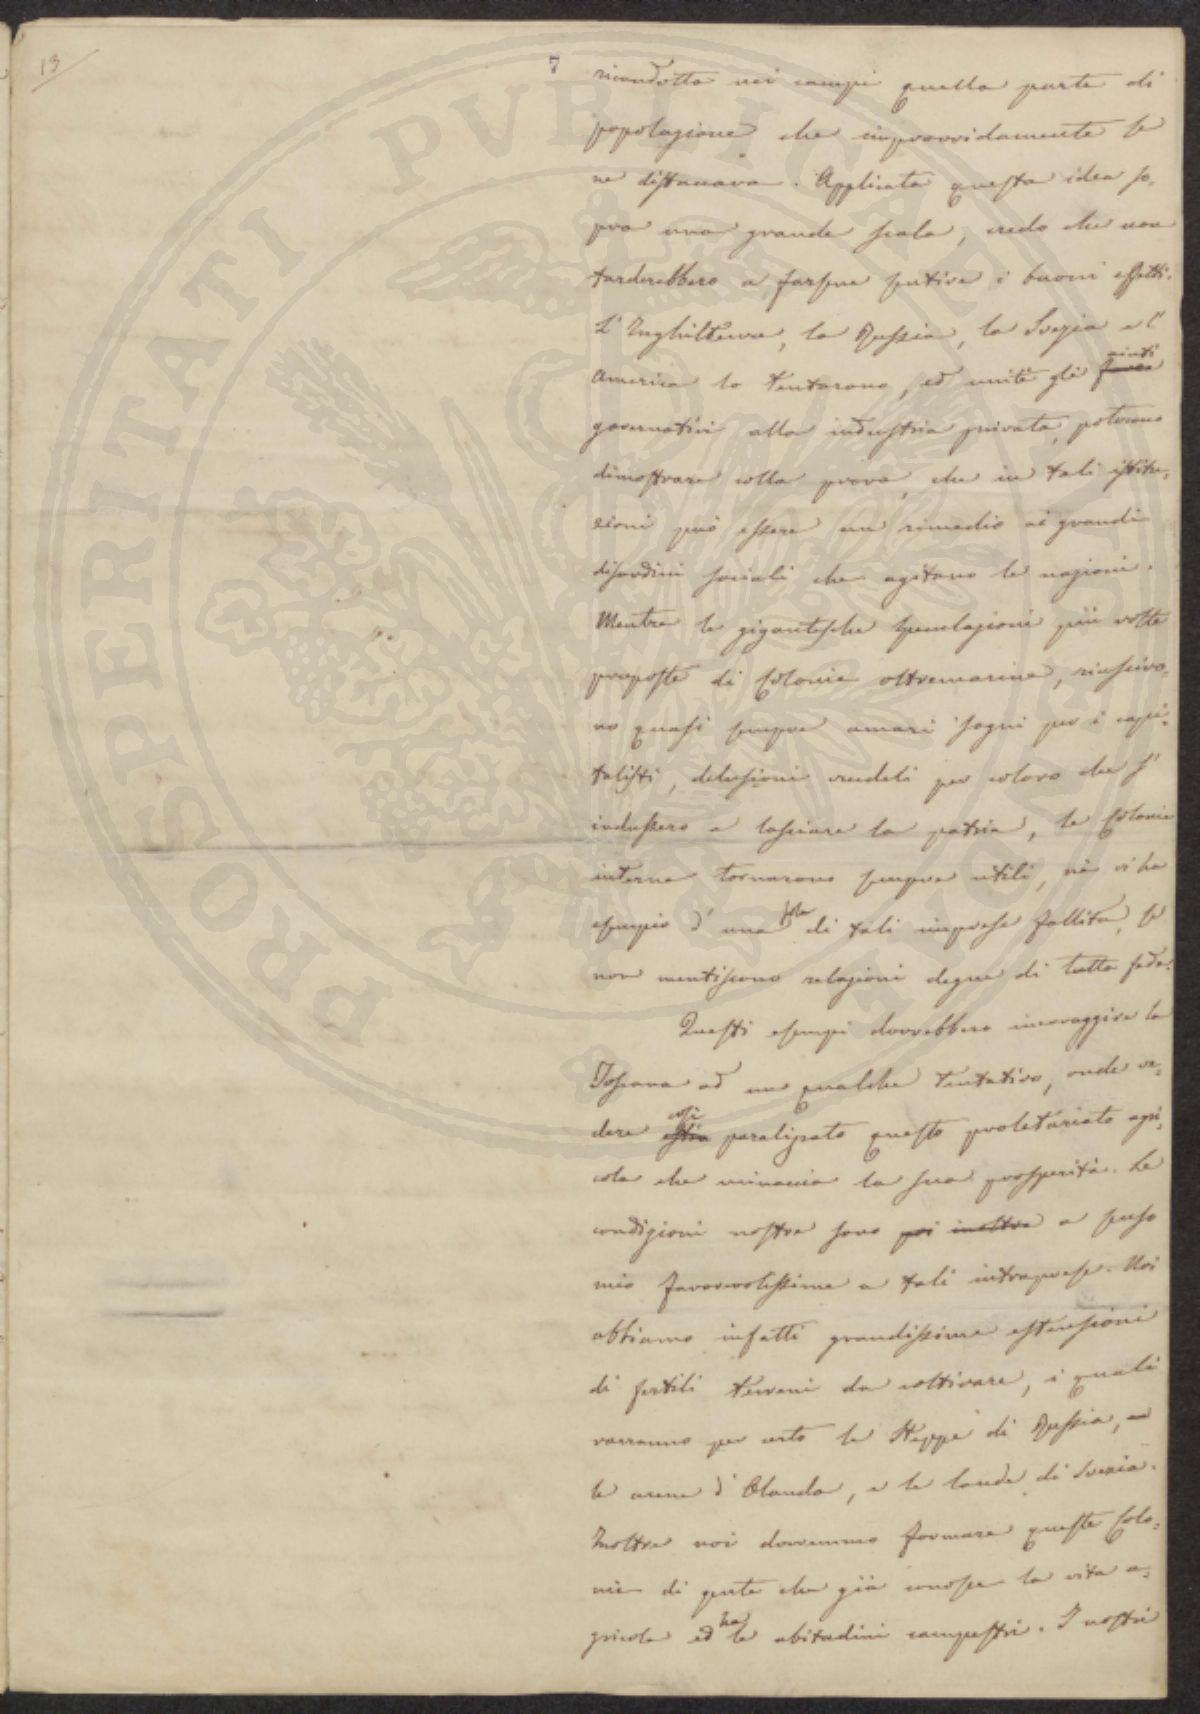 13
7
ricondotta nei campi quella parte di
popolazione che improvvidamente se
ne distaccava. Applicata questa idea so-
pra una grande scala, credo che non
tarderebbero a farsene sentire i buoni effetti.
L'Inghilterra, la Russia, la Svezia e l'
America lo tentarono, ed uniti gli aiuti
governativi alla industria privata, poterono
dimostrare colla prova, che in tali istitu-
zioni può essere un rimedio ai grandi
disordini sociali che agitano le nazioni.
Mentre le gigantesche speculazioni più volte
proposte di Colonie oltremarine, riusciro-
no quasi sempre amari sogni per i capi-
talisti, delusioni crudeli per coloro che s'
indussero a lasciare la patria, le Colonie
interne tornarono sempre utili, nè vi ha
esempio d'una sola di tali imprese fallita, se
non mentiscono relazioni degne di tutta fede.
Questi esempi dovrebbero incoraggire la
Toscana ad un qualche tentativo, onde ve-
dere così paralizzato questo proletariato agri-
colo che minaccia la sua prosperità. Le
condizioni nostre sono poi inoltre a senso
mio favorevolissime a tali intraprese. Noi
abbiamo infatti grandissime estensioni
di fertili terreni da coltivare, i quali
varranno per certo le Steppe di Russia,
le arene d'Olanda, e le lande di Svezia.
Inoltre noi dovremmo formare queste Colo-
nie di gente che già conosce la vita a-
gricola ed ha le abitudini campestri. I nostri
PROSPERITATI PVBLICAE AVGENDAE